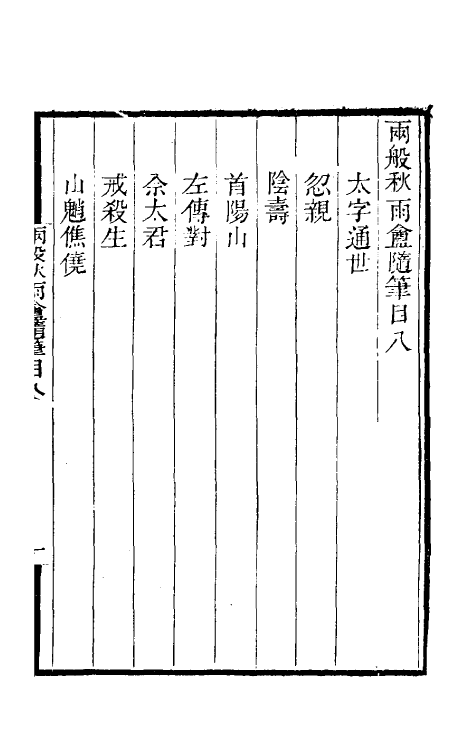 兩般秋雨盦隨筆目八
太字通世
忽親
陰壽
首陽山
左傳對
佘太君
戒殺生
山魈僬僥
兩般秋雨盦隨筆目八
一